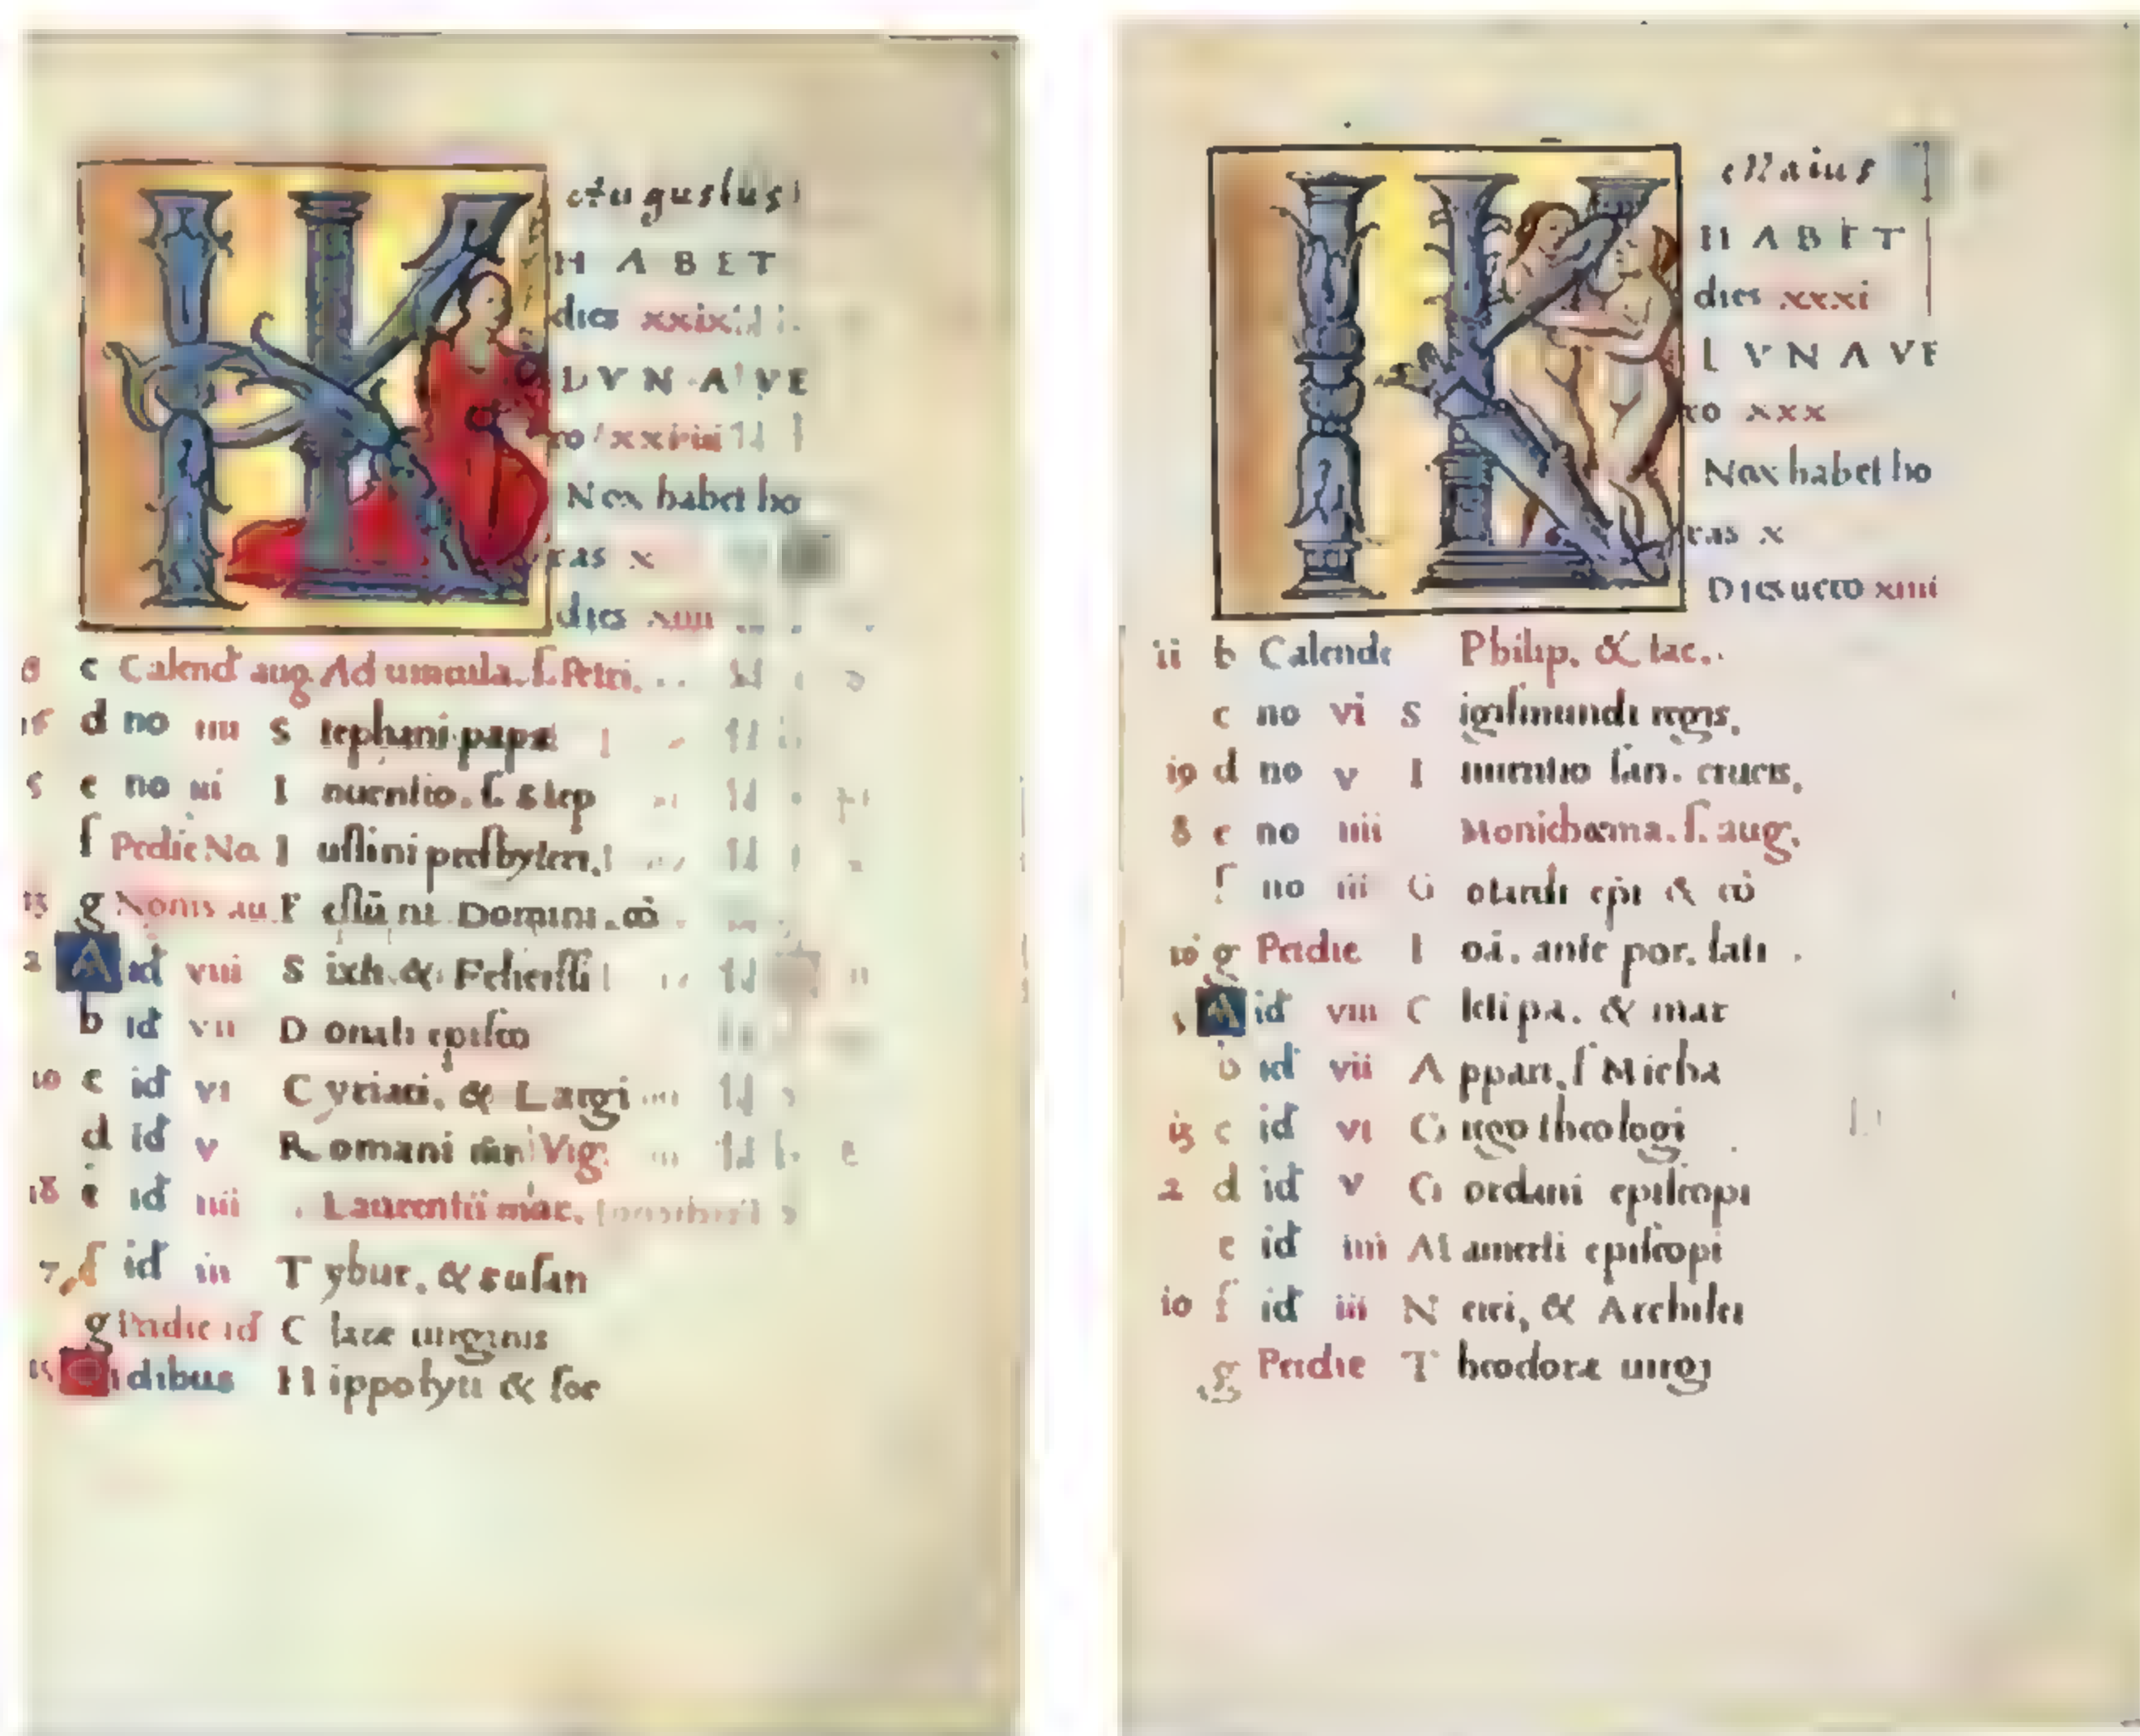 Augustus
HABET
dies xxix
LVNA VE
ro xxviiii
Nox habet ho
ras x
dies xiiii
8 c Calend aug. Ad uincula. s. Petri.
16 d no iiii Stephani papæ
5 e no iii Inuentio. s. step
f Pridie No. Iustini presbyteri.
13 g Nonis au Festū ni Domini.
2 A id viii Sixti & Felicissi
b id vii Donati episco
10 c id vi Cyriaci. & Largi
d id v Romani mr Vig:
18 e id iiii Laurentii mar.
7 f id iii Tybur. & susan
g Pridie id Claræ uirginis
15 idibus Hippolyti & soc
Maius
HABET
dies xxxi
LVNA VE
ro xxx
Nox habet ho
ras x
Dies uero xiiii
ii b Calende Philip. & Iac..
c no vi Sigismundi regis.
19 d no v Inuentio san. crucis.
8 e no iiii Monicbæma. s. aug.
f no iii Gotardi epi & cō
16 g Pridie Ioā. ante por. lati.
5 A id viii Cleti pa. & mar
b id vii Appari. s Micha
13 c id vi Grego theologi
2 d id v Gordani episcopi
e id iiii Mamerti episcopi
10 f id iii Nerei, & Archilei
g Pridie Theodoræ uirgi